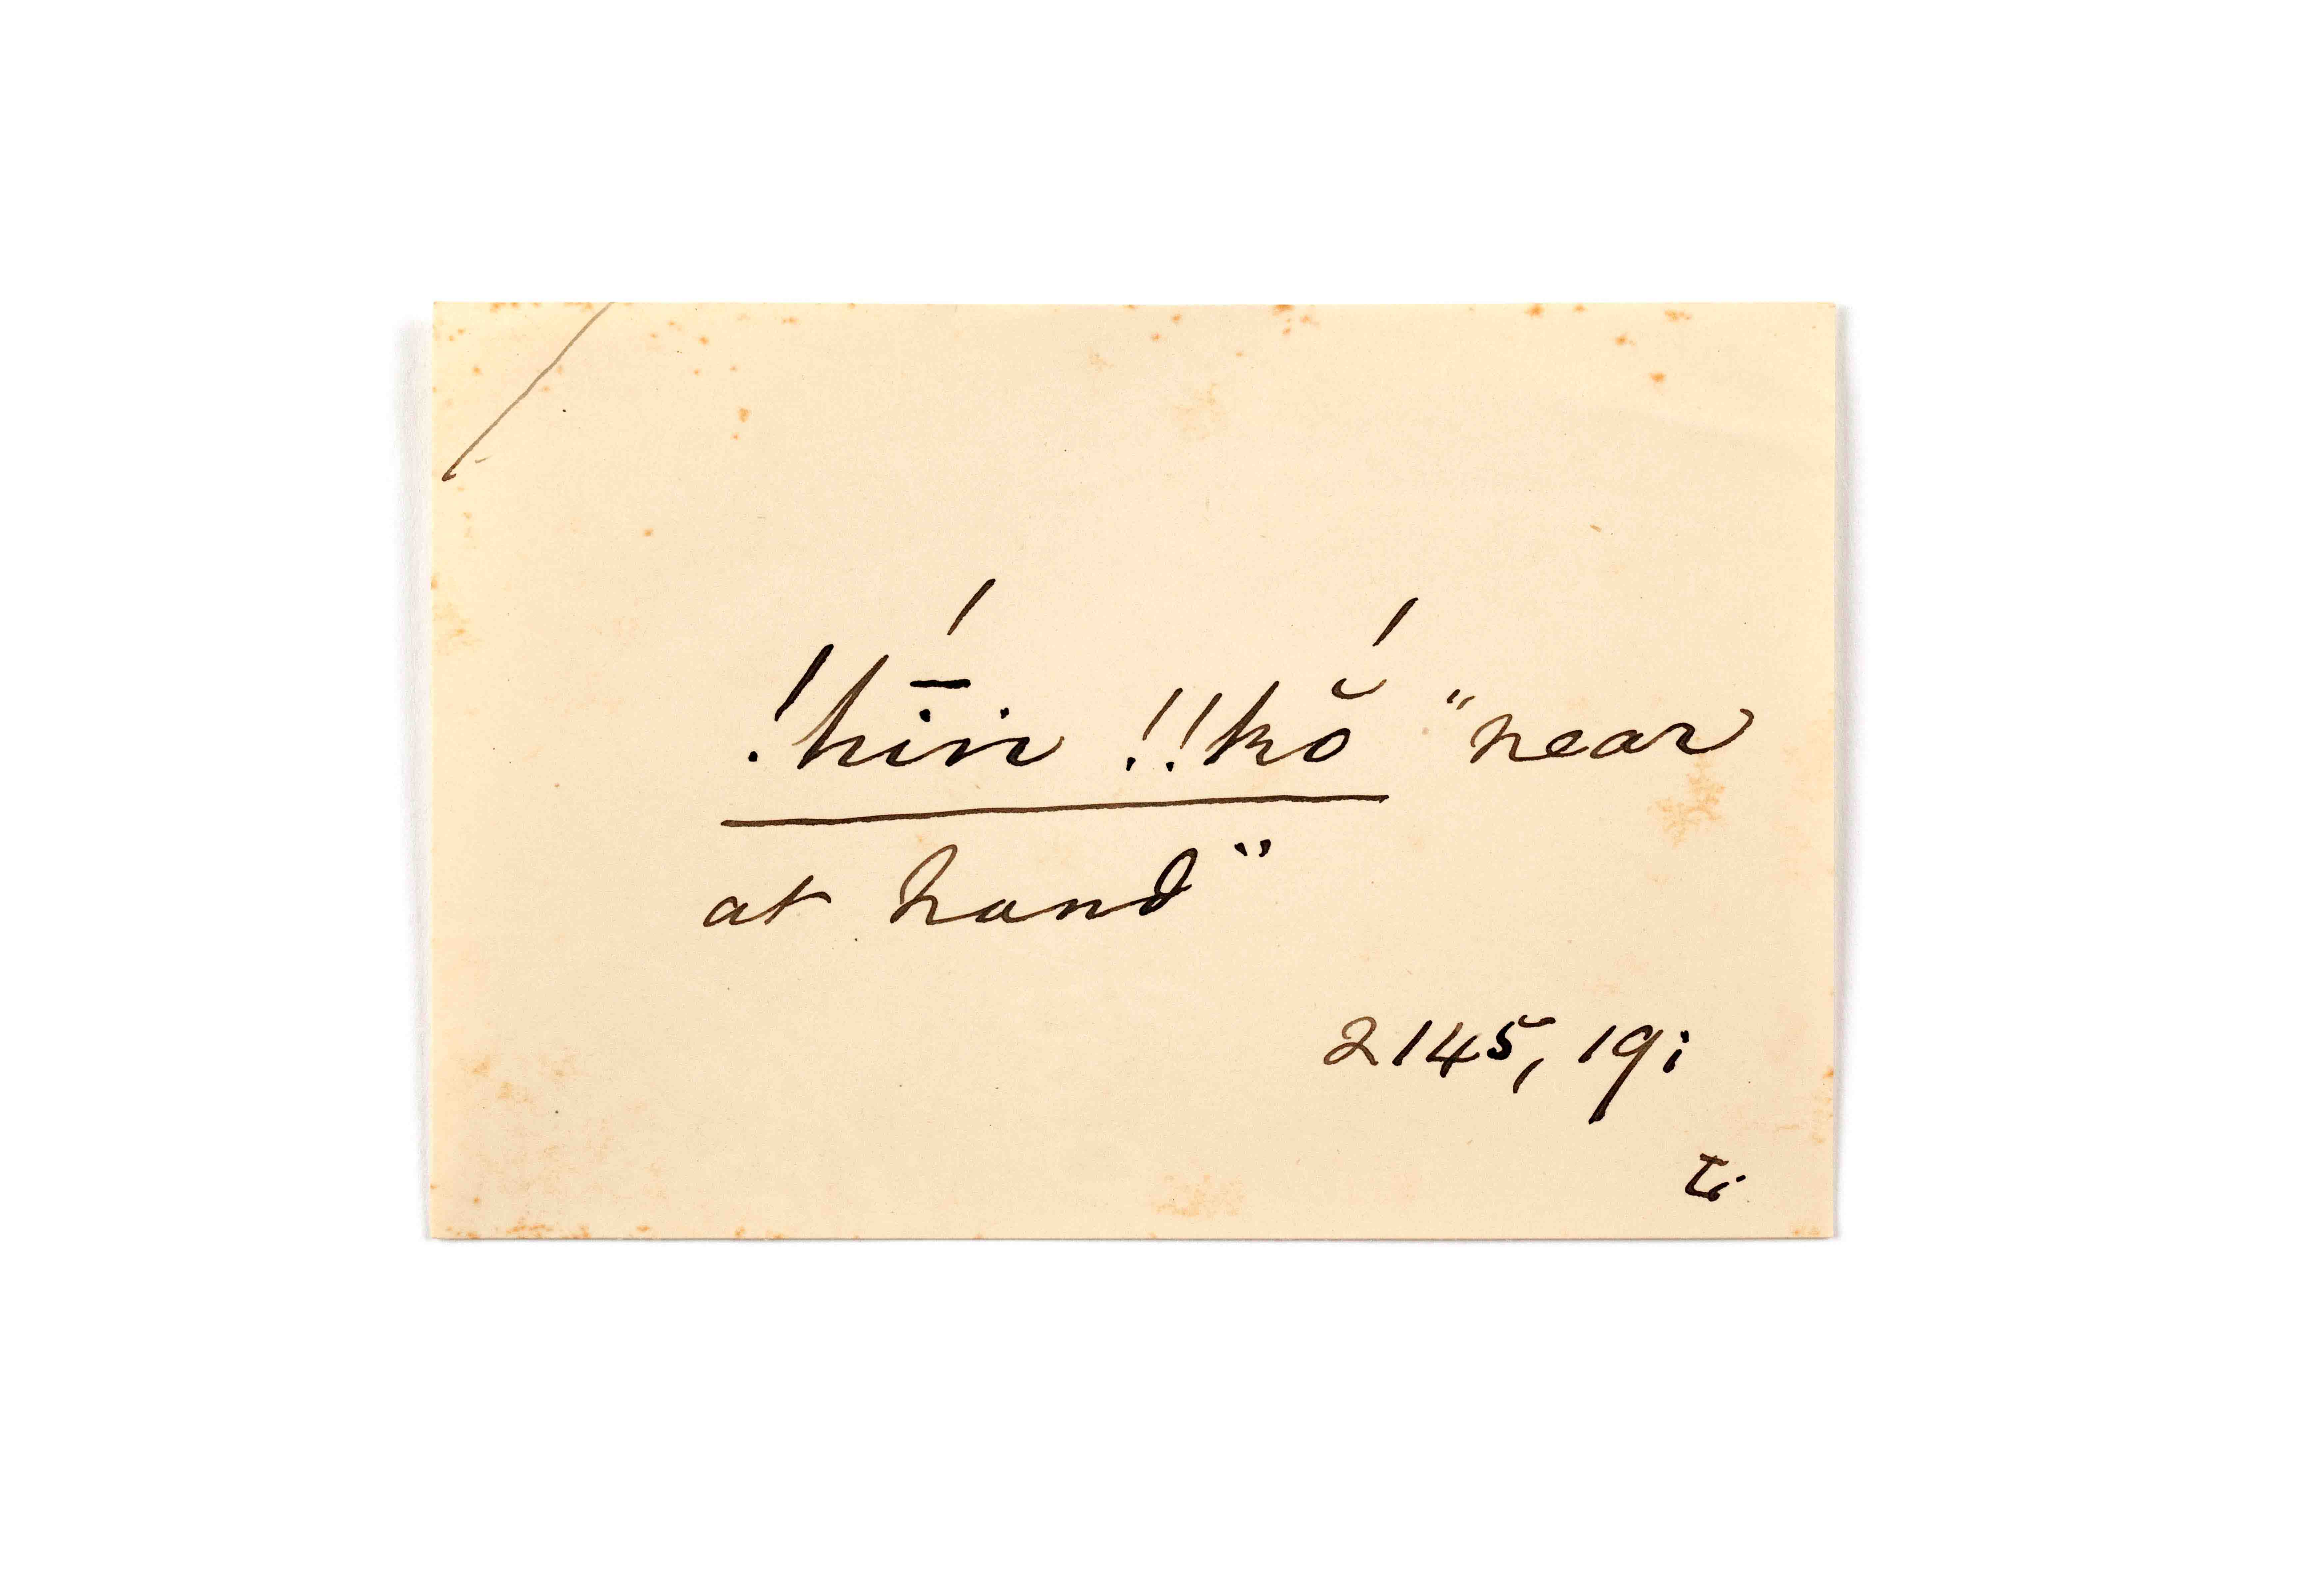 !hī́ṅ !!kŏ́ "near
at hand"
2145, 19;
tr.